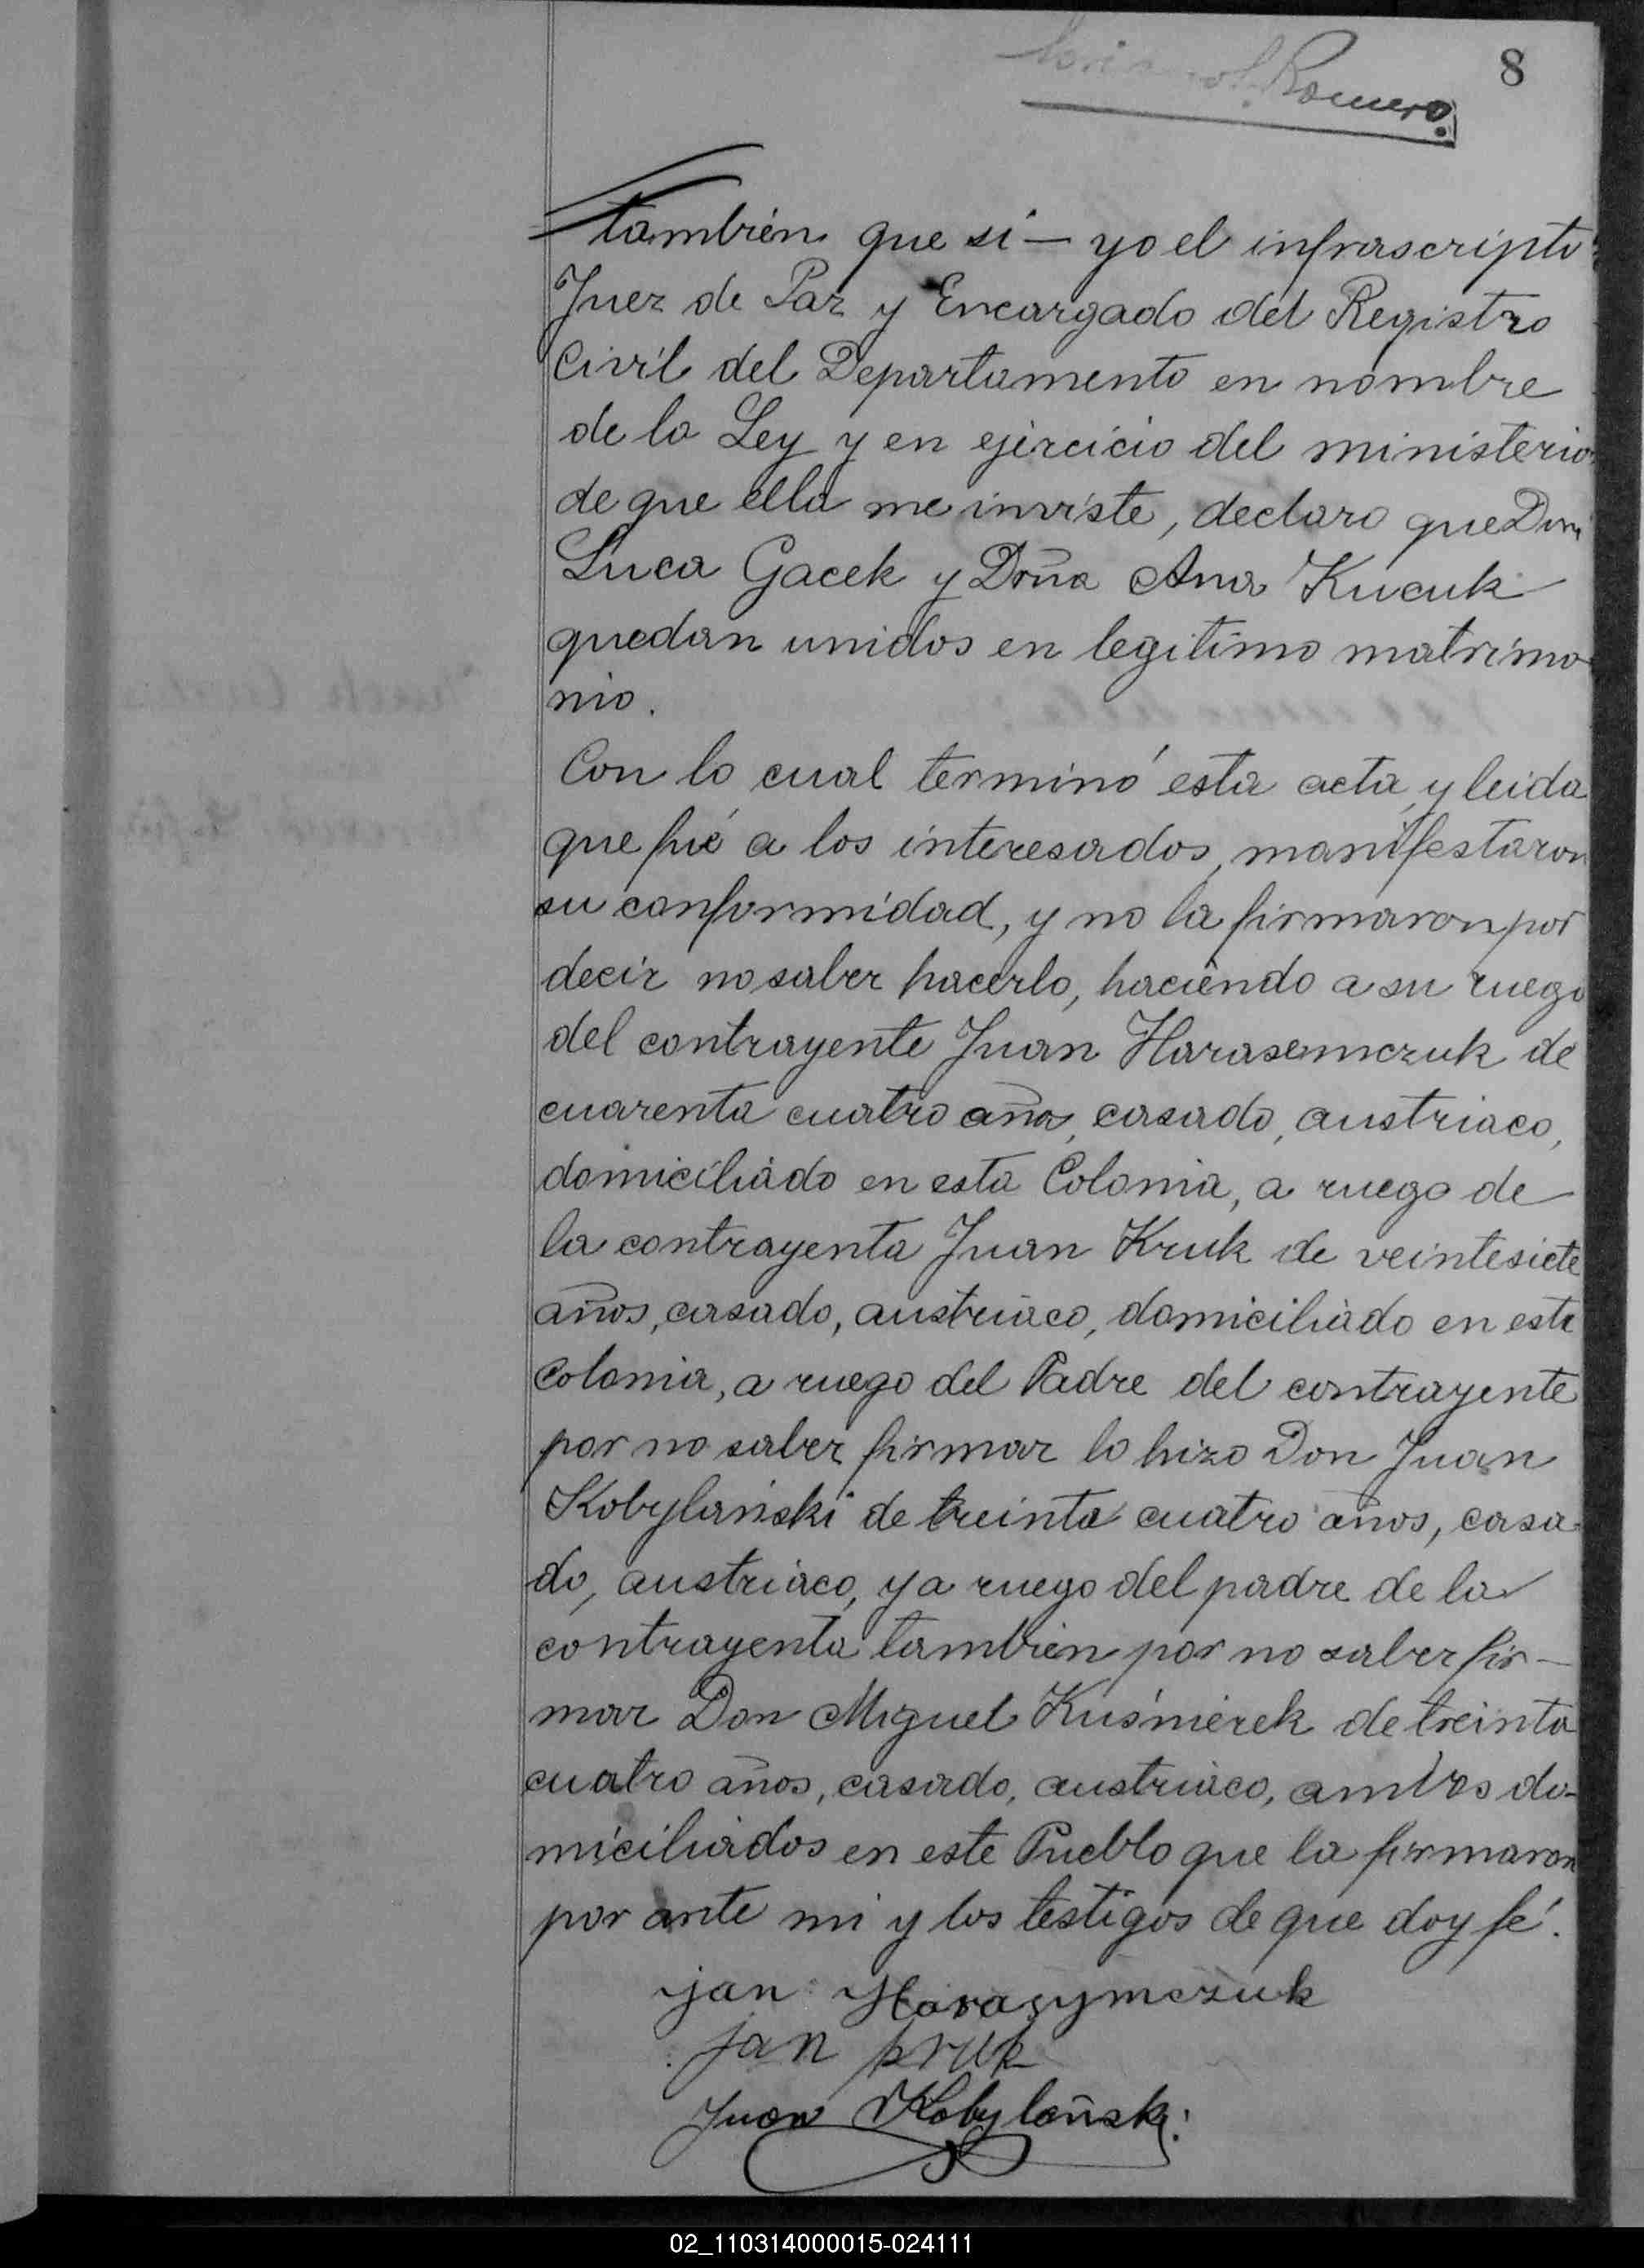 8
Romero
también que si — yo el infrascripto
Juez de Paz y Encargado del Registro
Civil del Departamento en nombre
de la Ley y en ejercicio del ministerio
de que ella me inviste, declaro que Don
Luca Gacek y Doña Ana Kucuk
quedan unidos en legitimo matrimo
nio.
Con lo cual terminó esta acta, y leida
que fué a los interesados, manifestaron
su conformidad, y no la firmaron por
decir no saber hacerlo, haciendo a su ruego
del contrayente Juan Harasemczuk de
cuarenta cuatro años, casado, austriaco,
domiciliado en esta Colonia, a ruego de
la contrayenta Juan Kruk de veintesiete
años, casado, austriaco, domiciliado en esta
Colonia, a ruego del Padre del contrayente
por no saber firmar lo hizo Don Juan
Kobylański de treinta cuatro años, casa
do, austriaco, y a ruego del padre de la
contrayenta tambien por no saber fir-
mar Don Miguel Kuśmierek de treinta
cuatro años, casado, austriaco, ambos do-
miciliados en este Pueblo que la firmaron
por ante mi y los testigos de que doy fé.
Jan Harasymczuk
Jan Kruk
Juan Kobylański
02_110314000015-024111